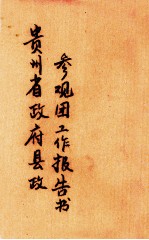 贵州省政府县政
参观团工作报告书